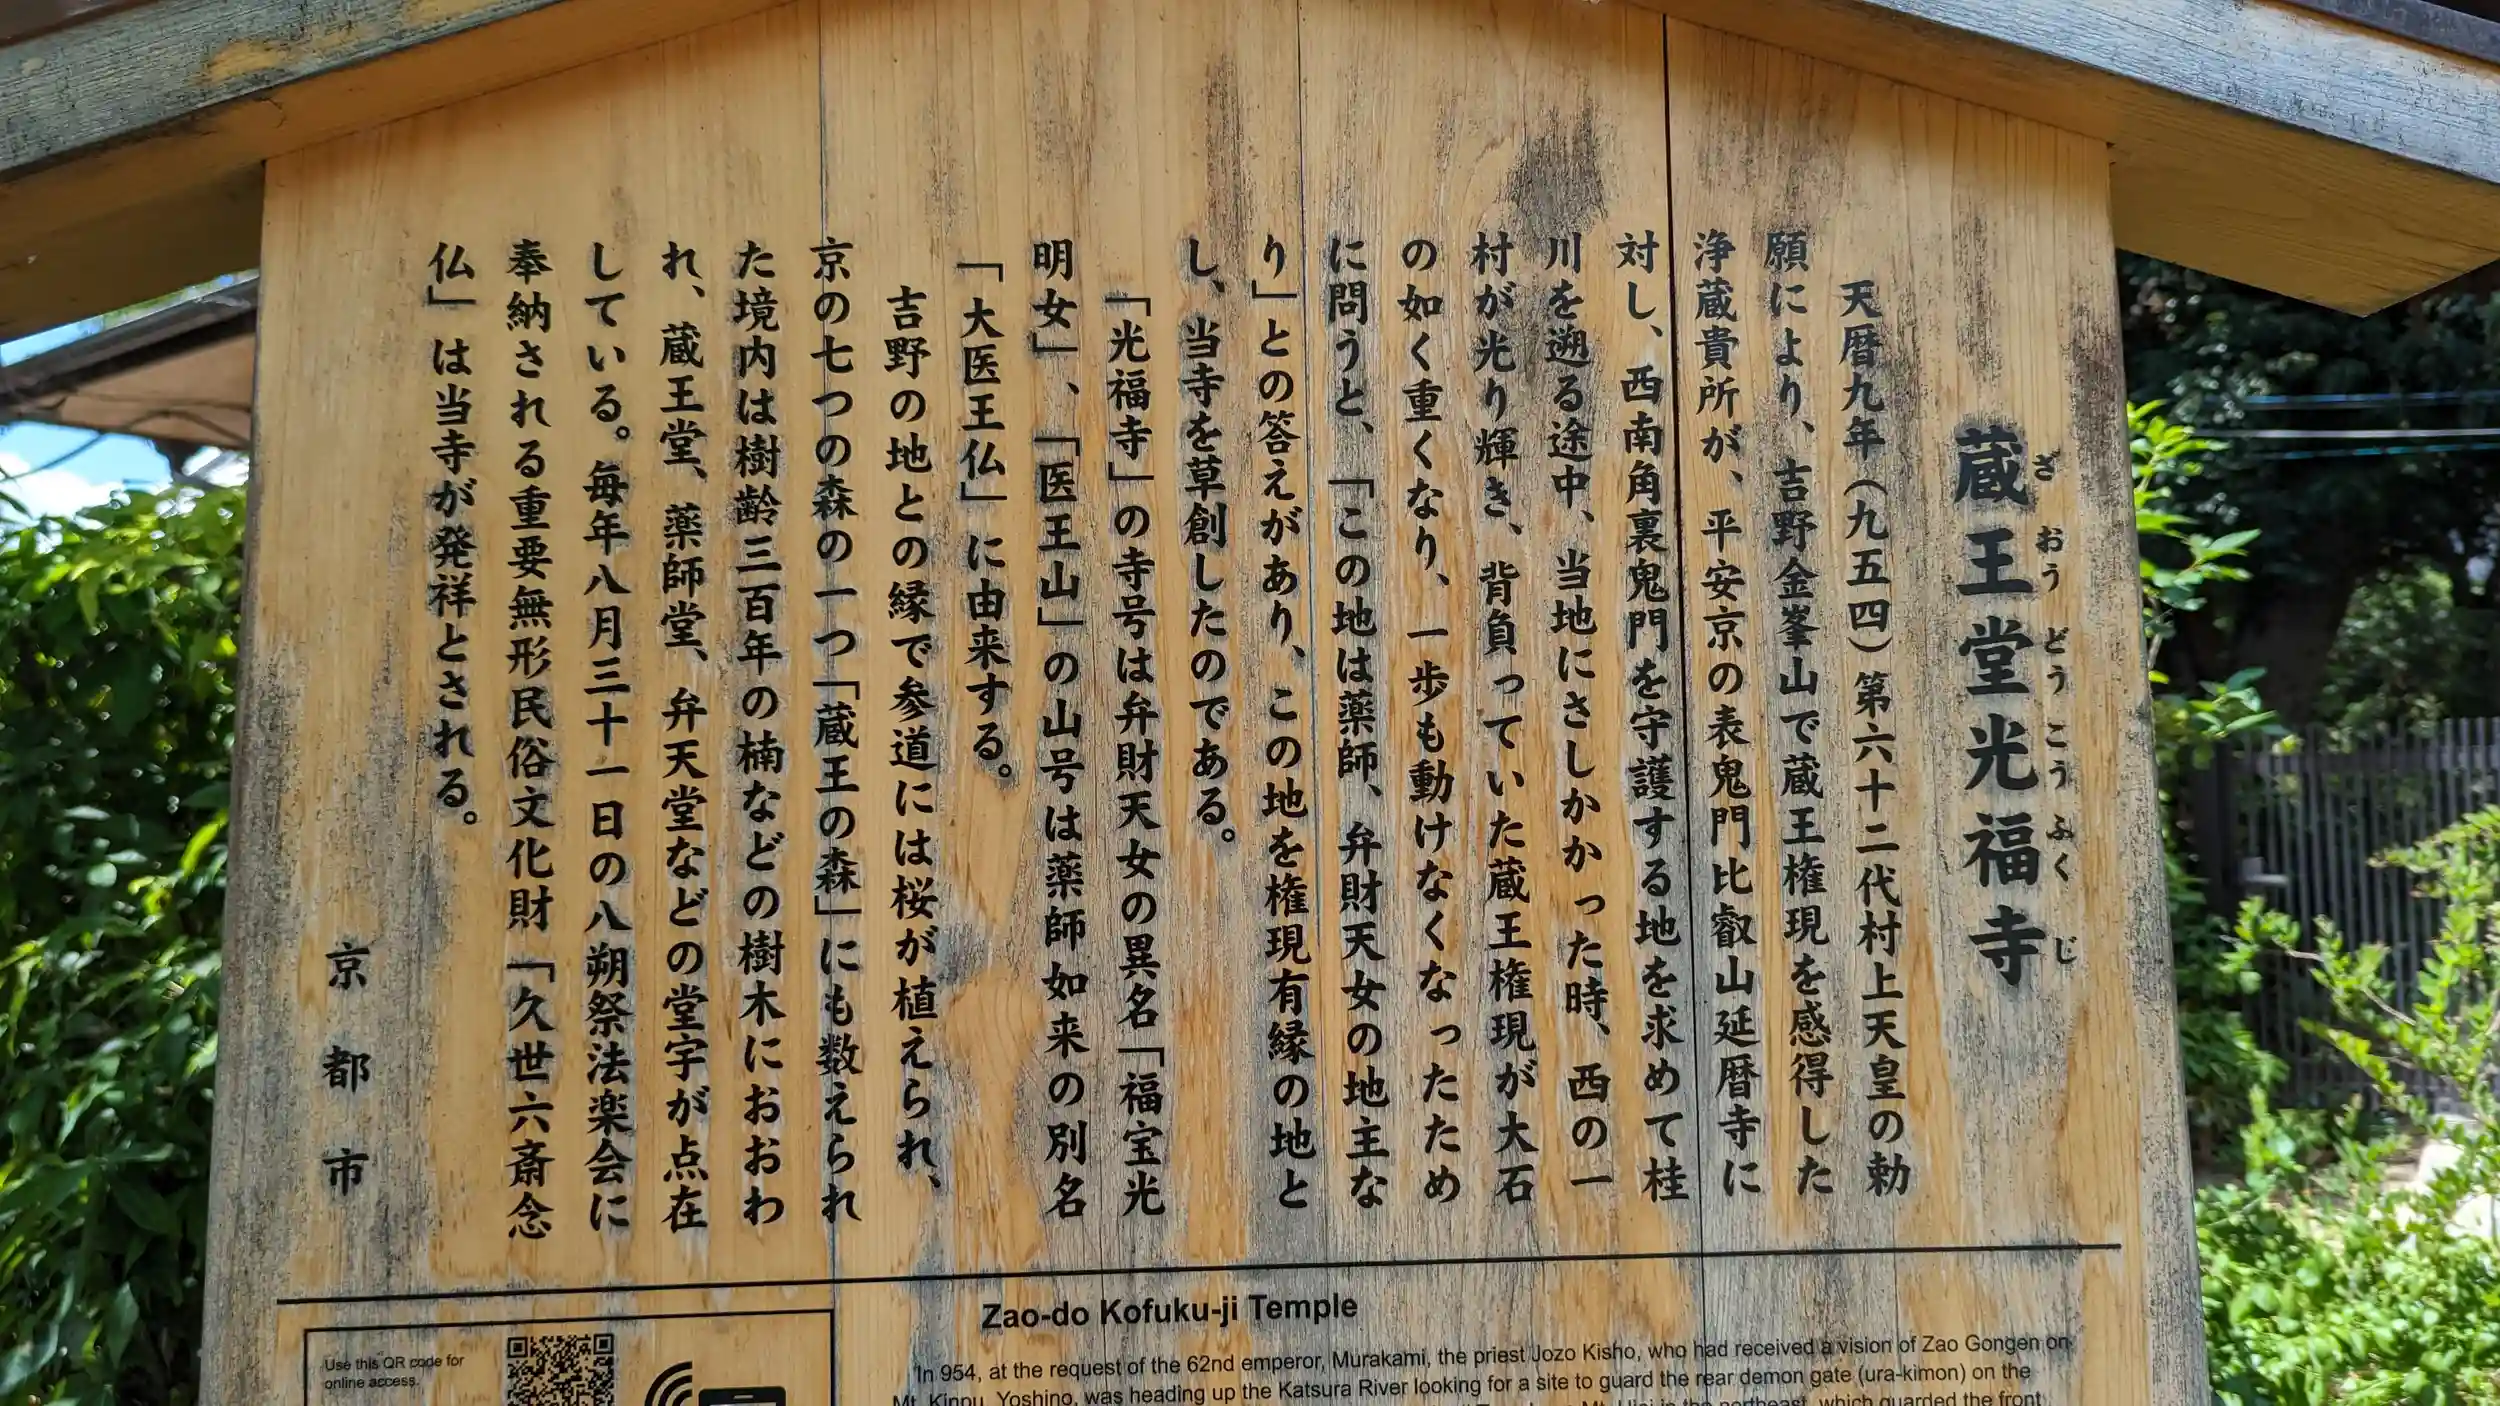 蔵王堂光福寺
ざおうどうこうふくじ
天暦九年（九五四）第六十二代村上天皇の勅
願により、吉野金峯山で蔵王権現を感得した
浄蔵貴所が、平安京の表鬼門比叡山延暦寺に
対し、西南角裏鬼門を守護する地を求めて桂
川を遡る途中、当地にさしかかった時、西の一
村が光り輝き、背負っていた蔵王権現が大石
の如く重くなり、一歩も動けなくなったため
に問うと、「この地は薬師、弁財天女の地主な
り」との答えがあり、この地を権現有縁の地と
し、当寺を草創したのである。
「光福寺」の寺号は弁財天女の異名「福宝光
明女」、「医王山」の山号は薬師如来の別名
「大医王仏」に由来する。
吉野の地との縁で参道には桜が植えられ、
京の七つの森の一つ「蔵王の森」にも数えられ
た境内は樹齢三百年の楠などの樹木におおわ
れ、蔵王堂、薬師堂、弁天堂などの堂宇が点在
している。毎年八月三十一日の八朔祭法楽会に
奉納される重要無形民俗文化財「久世六斎念
仏」は当寺が発祥とされる。
京都市
Zao-do Kofuku-ji Temple
In 954, at the request of the 62nd emperor, Murakami, the priest Jozo Kisho, who had received a vision of Zao Gongen on
Mt. Kinpu, Yoshino, was heading up the Katsura River looking for a site to guard the rear demon gate (ura-kimon) on the
Mt. Hiei in the northeast, which guarded the front
Use this QR code for
online access.